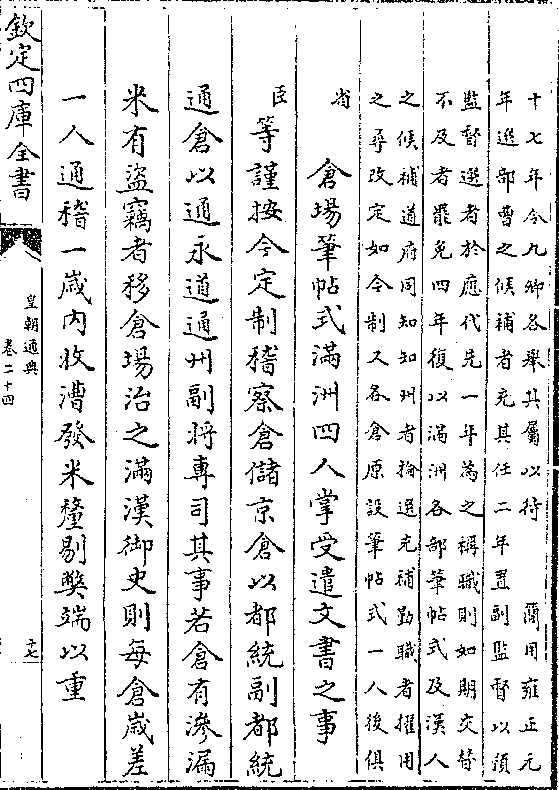 十七年令九卿各舉其屬以待　　簡用雍正元
年選部曹之候補者充其任二年置副監督以須
監督選者於應代先一年為之稱職則如期交替
不及者罷免四年復以滿洲各部筆帖式及漢人
之候補道府同知知州者揀選充補勤職者擢用
之尋改定如今制又各倉原設筆帖式一人後俱
省
倉場筆帖式滿洲四人掌受遣文書之事
臣等謹按今定制稽察倉儲京倉以都統副都統
通倉以通永道通州副將專司其事若倉有滲漏
米有盜竊者移倉場治之滿漢御史則每倉歲差
一人通稽一歲內收漕發米釐剔弊端以重
欽定四庫全書
皇朝通典
卷二十四